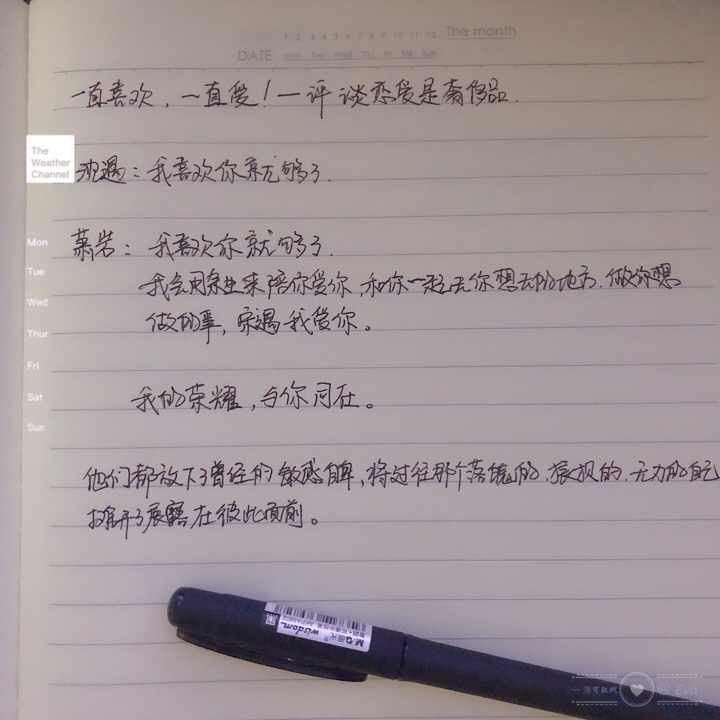 1 2 3 4 5 6 7 8 9 10 11 12 The month
DATE Mon Tue Wed Thu Fri Sat Sun
一直喜欢，一直爱！一评 谈恋爱是奢侈品.
The
Weather
Channel
沈遇：我喜欢你就够了.
Mon
萧岩：我喜欢你就够了.
Tue
我会用余生来陪你爱你,和你一起去你想去的地方.做你想
Wed
做的事, 宋遇-我爱你。
Thur
Fri
Sat
我的荣耀,与你同在。
Sun
他们都放下了曾经的敏感自卑,将过往那个落魄的.狼狈的.无力的自己
摊开了展露在彼此面前。
M&G 晨光®
wisdom
黑
AKPA5802
@ Eva